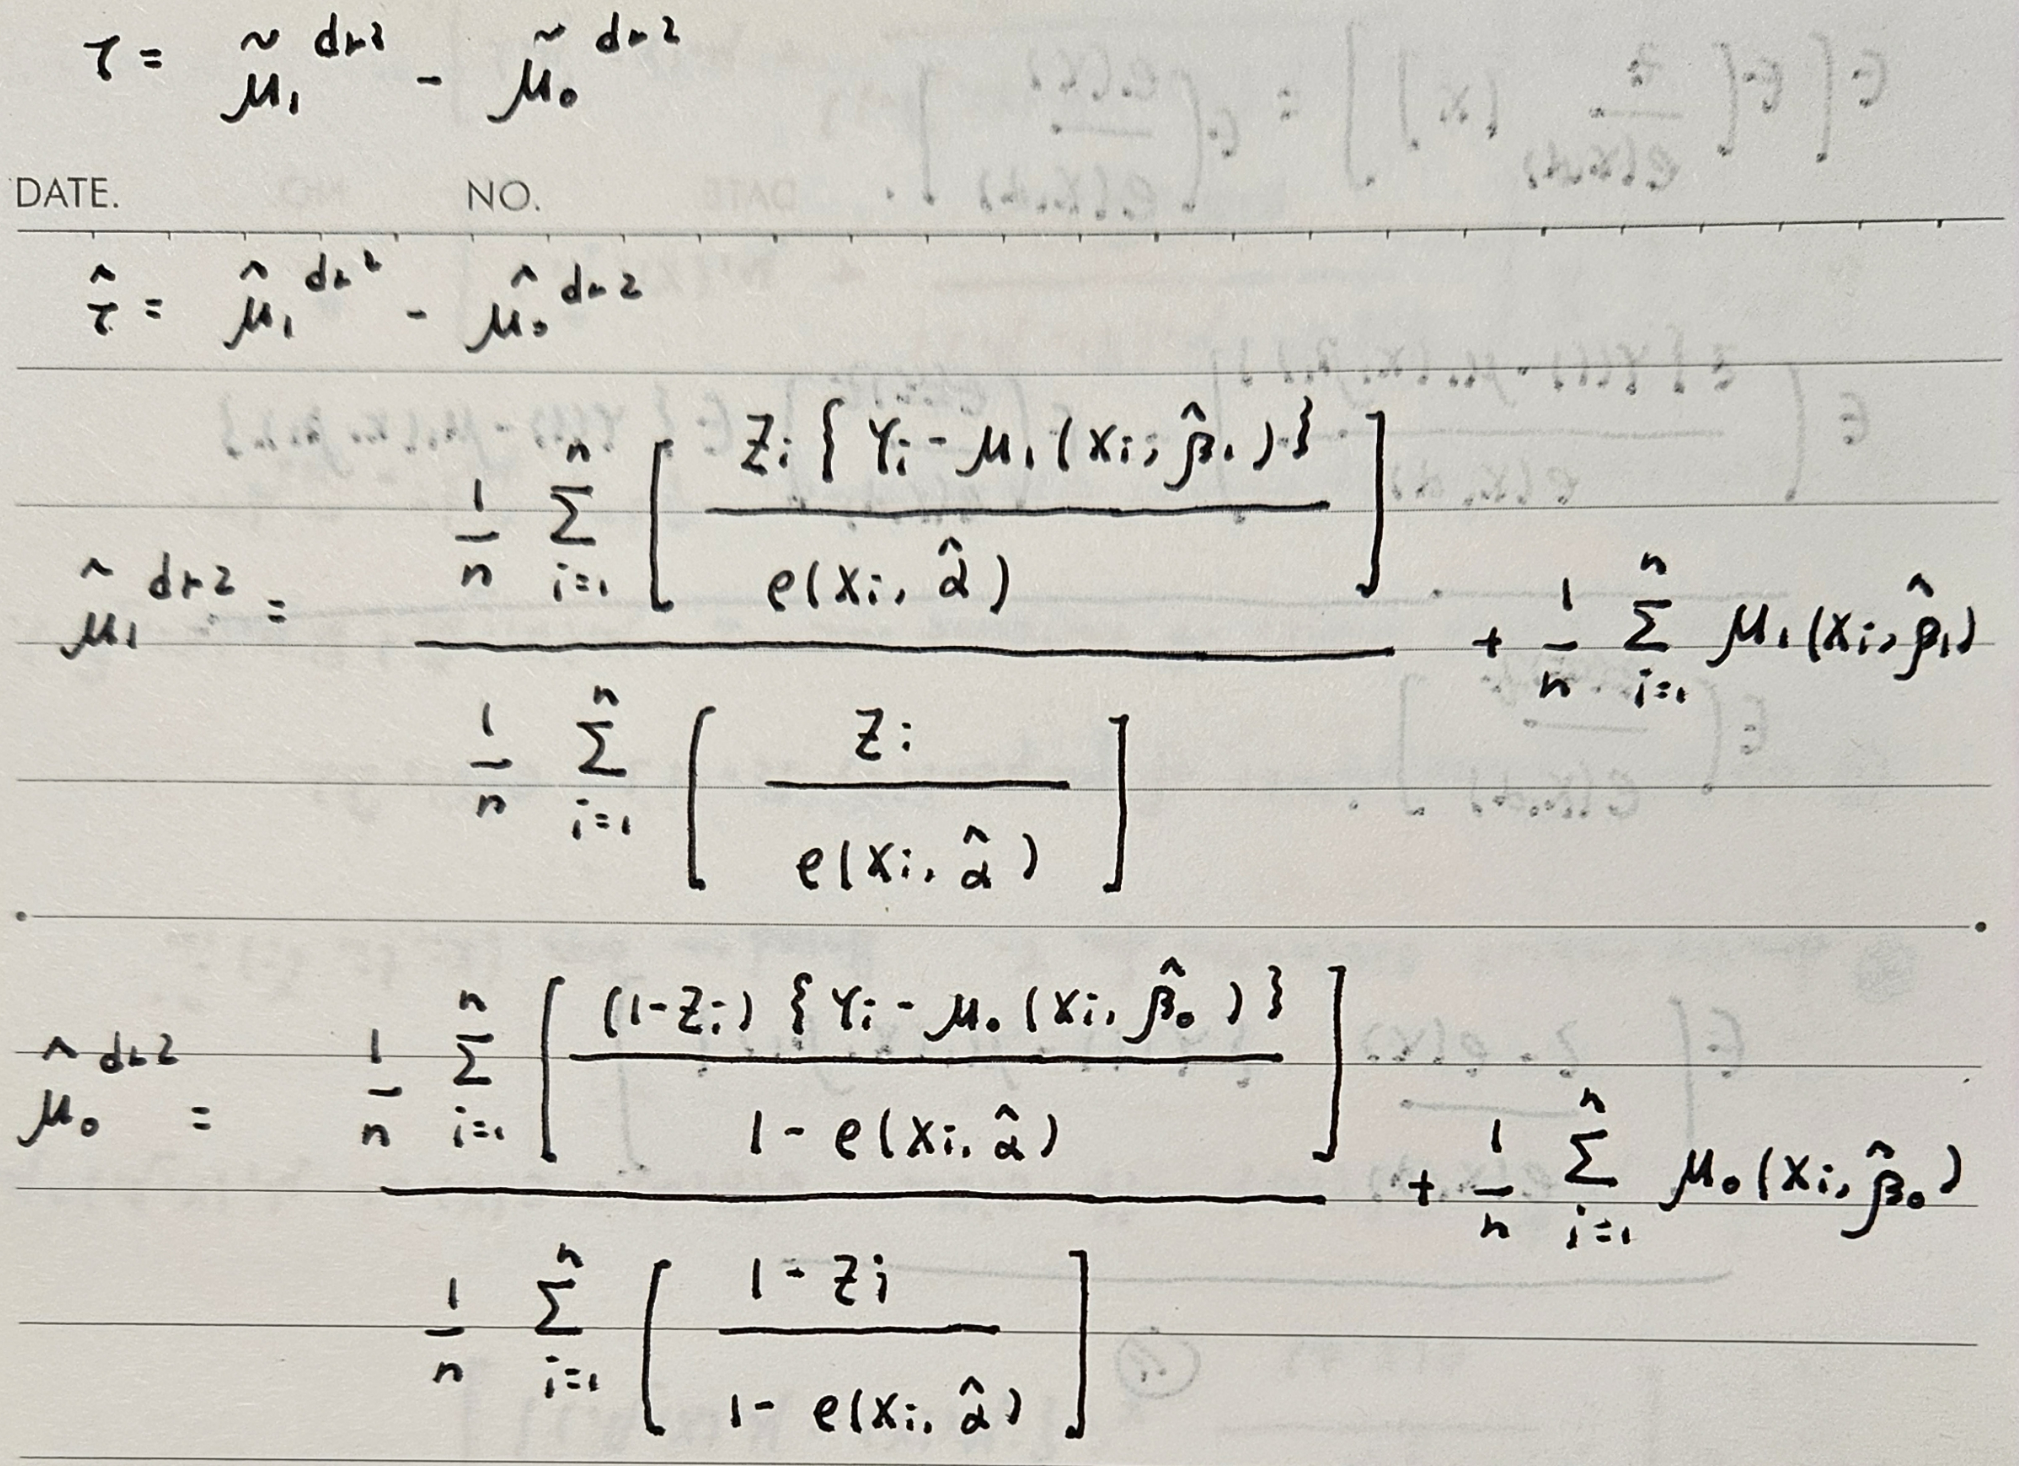 τ = μ̃₁^dr2 - μ̃₀^dr2
DATE. NO.
τ̂ = μ̂₁^dr2 - μ̂₀^dr2
μ̃₁^dr2 = \frac{\frac{1}{n} \sum_{i=1}^{n} [ \frac{Z_i \{ Y_i - μ_1(X_i, \hat{β}_1) \}}{e(X_i, \hat{α})} ]}{\frac{1}{n} \sum_{i=1}^{n} [ \frac{Z_i}{e(X_i, \hat{α})} ]} + \frac{1}{n} \sum_{i=1}^{n} μ_1(X_i, \hat{β}_1)
μ̂₀^dr2 = \frac{\frac{1}{n} \sum_{i=1}^{n} [ \frac{(1-Z_i) \{ Y_i - μ_0(X_i, \hat{β}_0) \}}{1 - e(X_i, \hat{α})} ]}{\frac{1}{n} \sum_{i=1}^{n} [ \frac{1 - Z_i}{1 - e(X_i, \hat{α})} ]} + \frac{1}{n} \sum_{i=1}^{n} μ_0(X_i, \hat{β}_0)